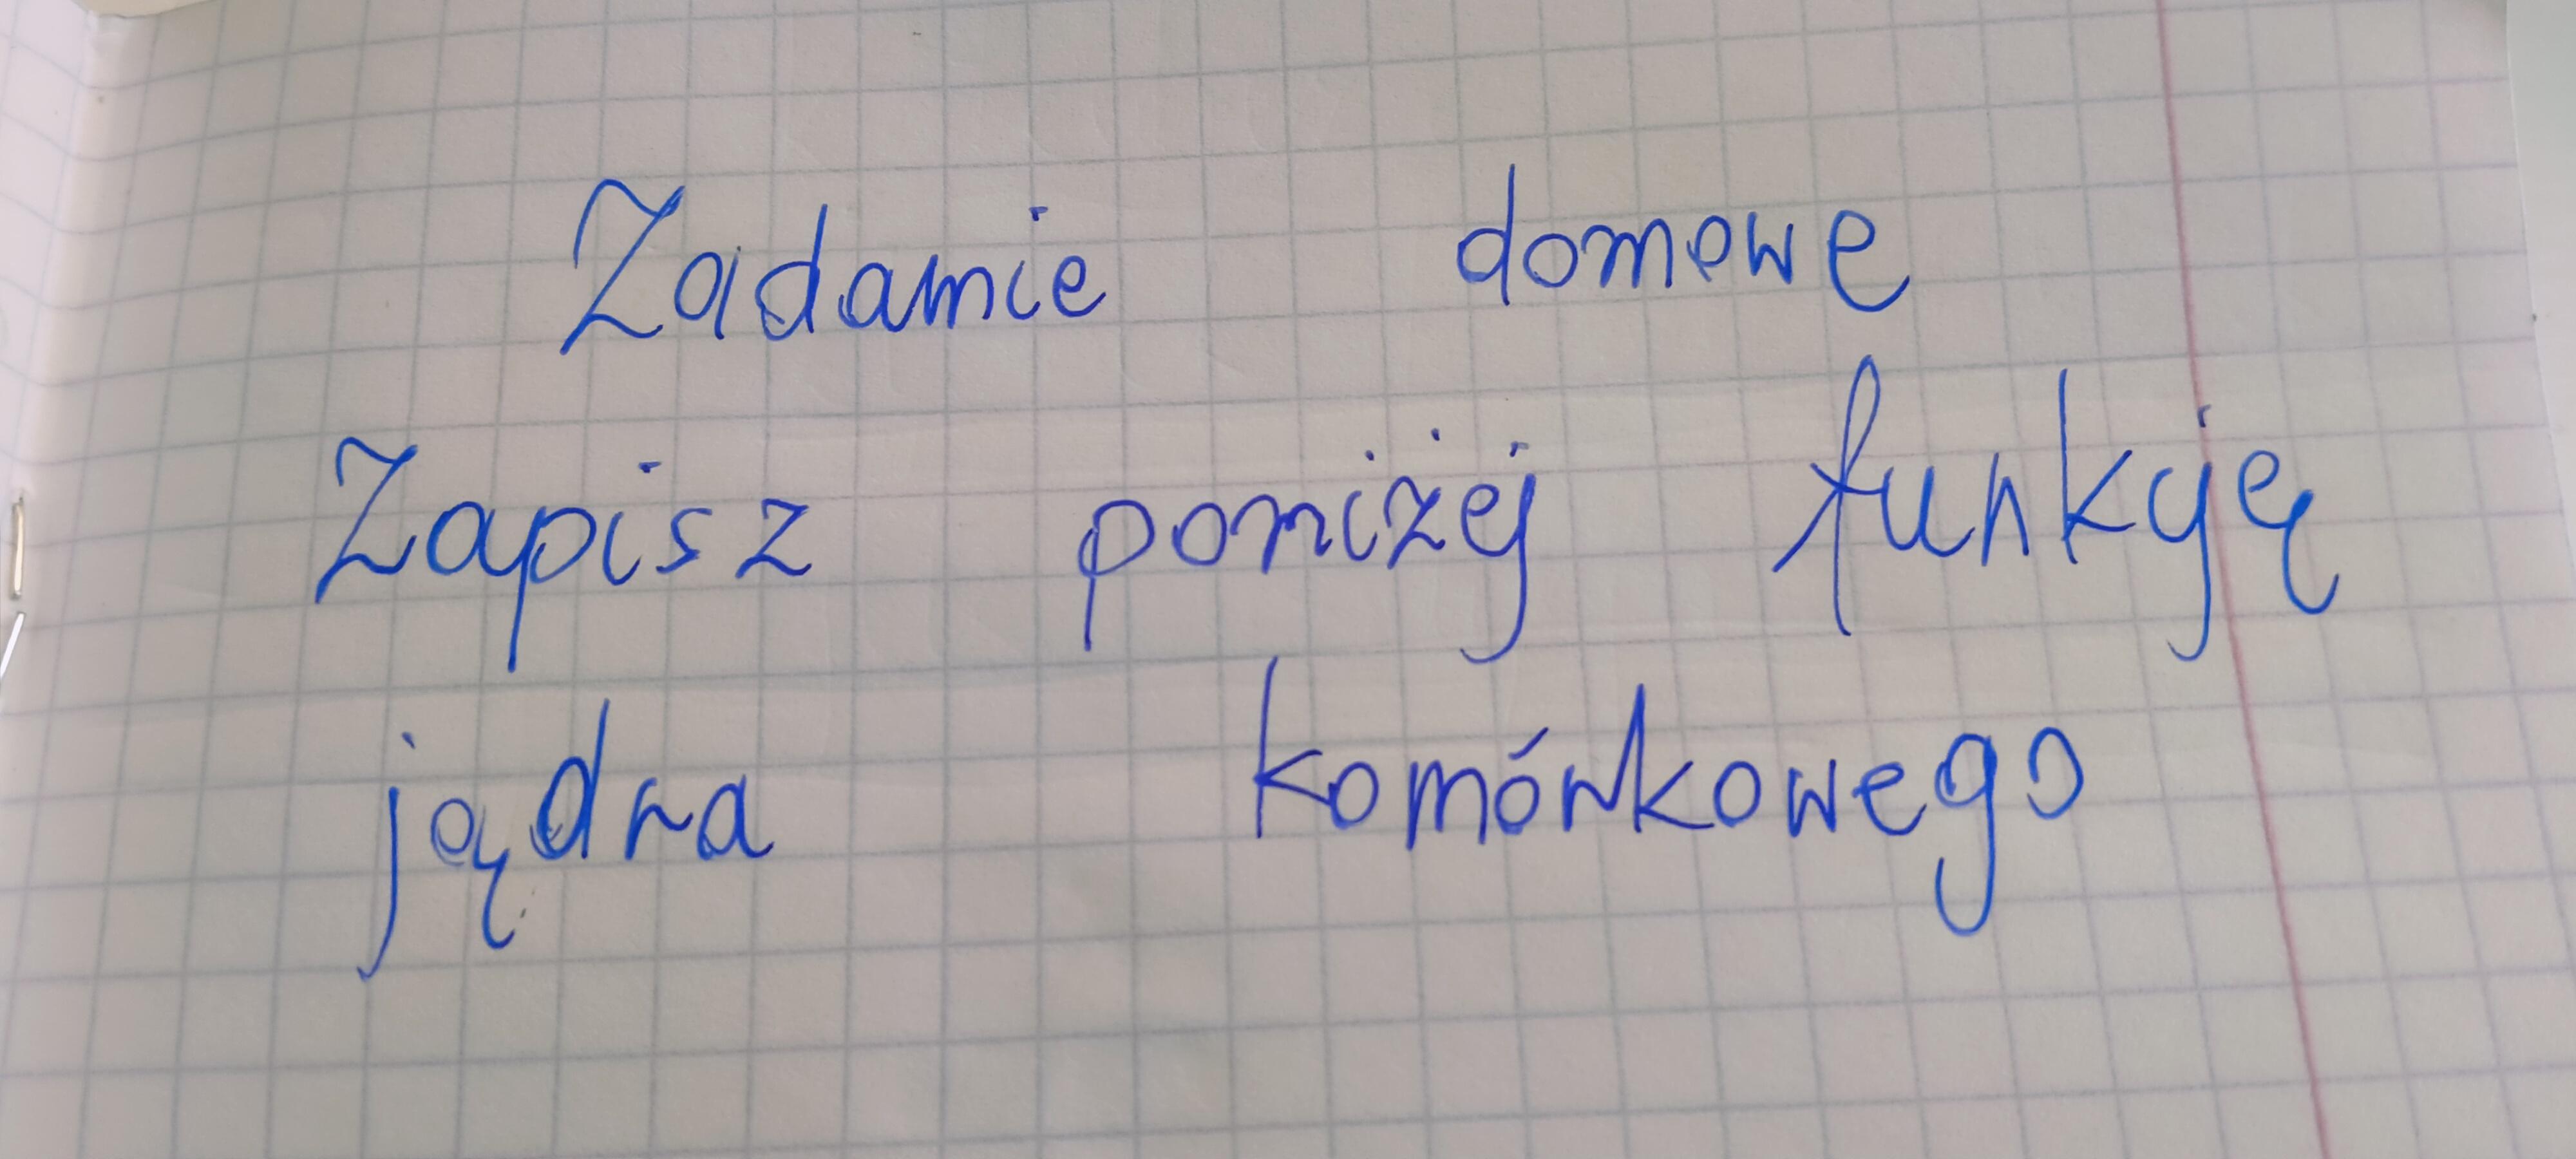 Zadanie domowe
Zapisz poniżej funkcję
jądra komórkowego